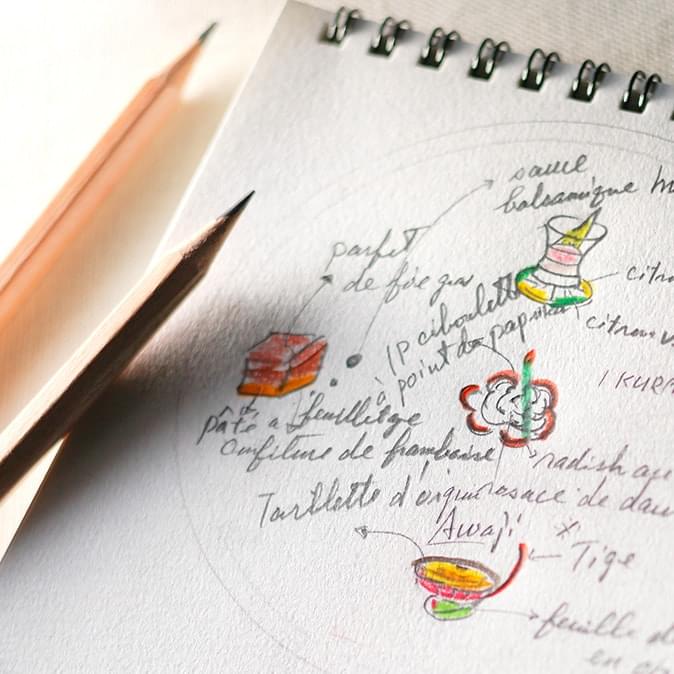 sauce
balsamique
parfait
de foie gras
citro
1P ciboulette
citron v
à point de paprika
1 KURA
pâté a feuilletge
Confiture de framboise
radish au
Tartlette d'origin
sauce de dau
Awaji
x
Tige
feuille d
en